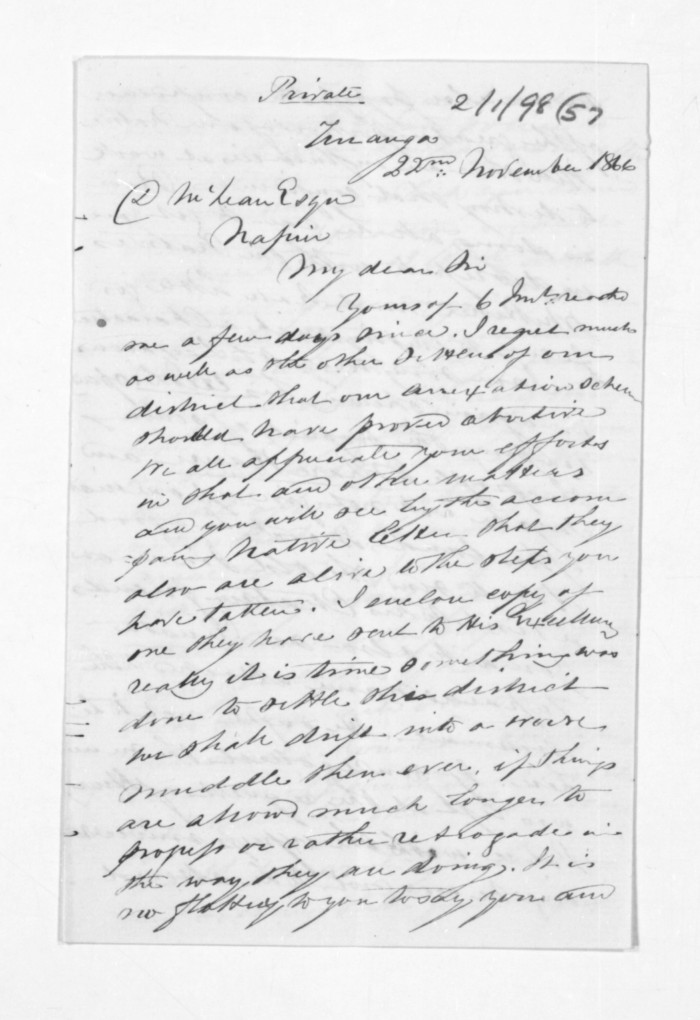 Private
2/1/98 (57
Turanga
22nd: November 1866
D McLean Esqr
Napier
My dear Sir
Yours of 6 Inst. reached
me a few days since. I regret much
as well as the other Settlers of our
district that our anexation scheme
should have proved abortive
We all appreciate your effortes
in that and other matters
and you will see by the accom
=paning Native letter that they
also are alive to the steps you
have taken. I enclose copy of
one they have sent to His Excellency
really it is time something was
done to settle this district
we shall drift into a worse
muddle then ever, if things
are allowd much longer to
progress or rather retrogade in
the way they are doing. It is
no flattery to you to say your